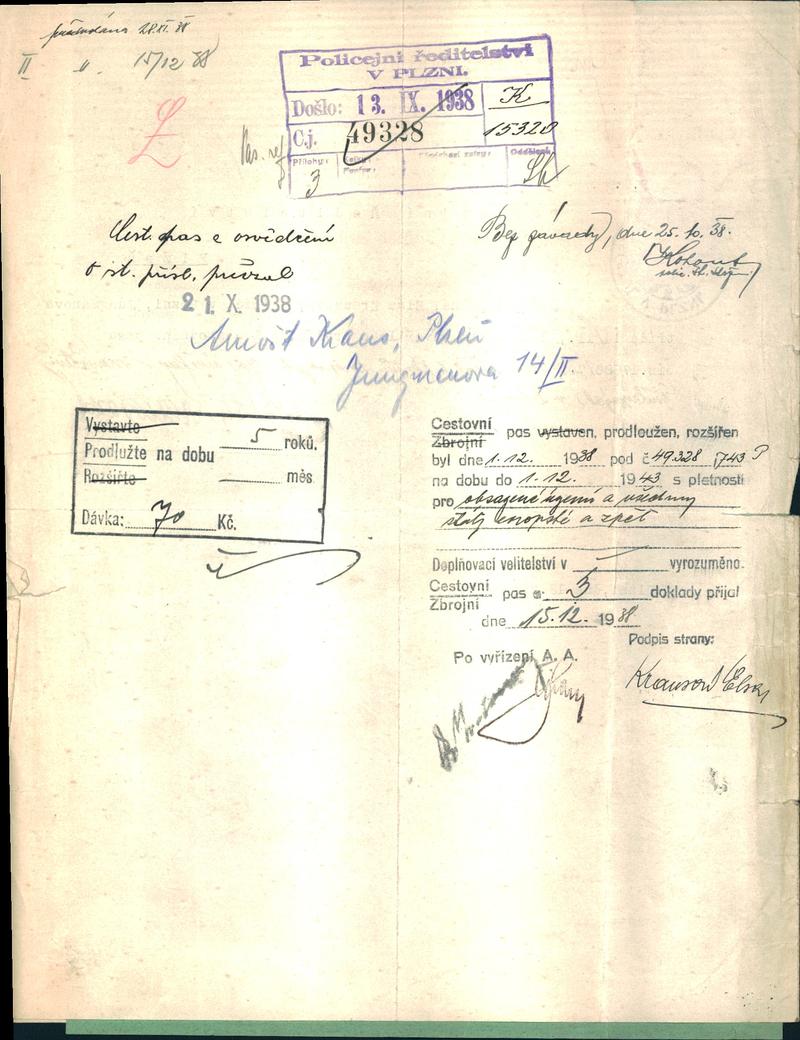 28.XI.38
II " 15/12 38
Policejní ředitelství
V PLZNI.
Došlo: 13. IX. 1938
K
Č.j. 49328
15320
Přílohy:
3
Ł
Cest. pas a osvědčení
o st. přísl. převzal
21. X. 1938
Arnošt Kraus, Plzeň
Jungmanova 14/II
Bez závady, dne 25. 10. 38.
Kohout
Vystavte
Prodlužte na dobu 5 roků.
Rozšiřte měs.
Dávka: 70 Kč.
Cestovní
Zbrojní pas vystaven, prodloužen, rozšířen
byl dne 1.12. 1938 pod č 49.328
na dobu do 1.12. 1943 s platností
pro obsazené území a všechny
státy evropské a zpět
Doplňovací velitelství v — vyrozuměno.
Cestovní
Zbrojní pas a 3 doklady přijal
dne 15.12. 1938
Podpis strany:
Po vyřízení A. A.
Krausová Elsa